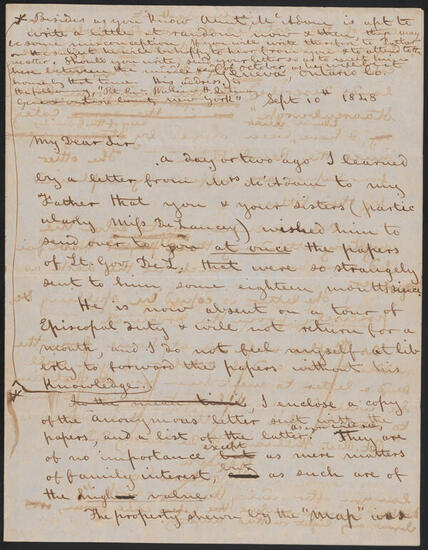 * Besides as you know Aunt McAdam is apt to
write a little at random now & then, & there may
be some misconception. If you will write therefore to
on the subject I will be
matter. Should you write, send your letter so as to
these between the middle &
of October, as I will not
Geneva, Ontario Co.
"Rt. Rev. William H. De Lancey
Geneva Ontario County, New York"
Sept 10th 1848
My Dear Sir
A day or two ago I learned
by a letter from Mrs McAdam to my
Father that you & your sisters (partic
ularly Miss De Lancey) wished him to
send over to you at once the papers
of Lt. Gov. De L. that were so strangely
sent to him some eighteen months since.
He is now absent on a tour of
Episcopal duty & will not return for a
month, and I do not feel myself at lib
erty to forward the papers without his
knowledge. *
In the mean time, I enclose a copy
of the anonymous letter sent with the
papers, and a list of the latter. They are
of no importance except as mere matters
of family interest, but as such are of
the value.
The property shewn by the "Map" was